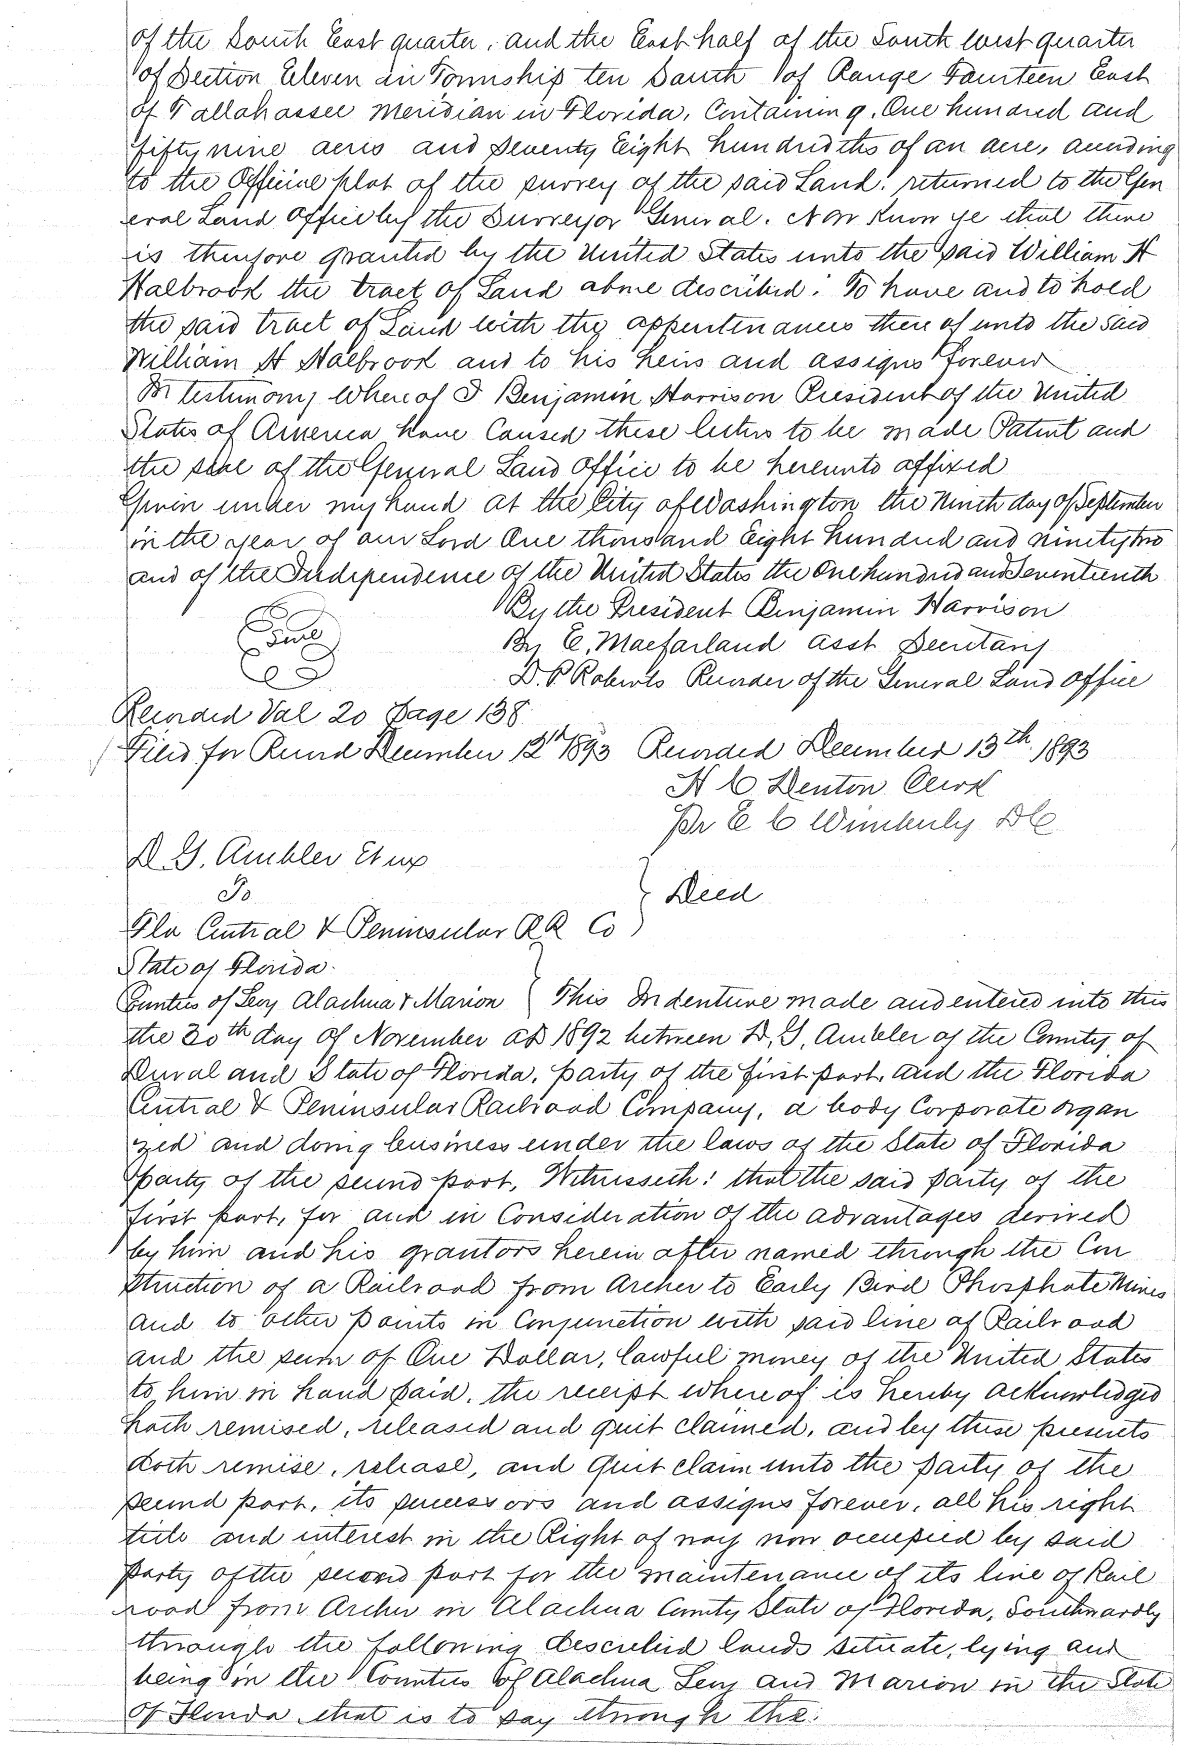 of the South East quarter, and the East half of the South West quarter
of Section Eleven in Township ten South of Range Fourteen East
of Tallahassee Meridian in Florida, Containing, One hundred and
fifty nine acres and Seventy Eight hundredths of an acre, according
to the Official plat of the survey of the said Land, returned to the Gen
eral Land Office by the Surveyor General. Now Know ye that there
is therefore granted by the United States unto the said William H
Halbrook the tract of Land above described: To have and to hold
the said tract of Land with the appurtenances there of unto the said
William H Halbrook and to his heirs and assigns forever
In testimony where of I Benjamin Harrison President of the United
States of America have Caused these letters to be made Patent and
the seal of the General Land Office to be hereunto affixed
Given under my hand at the City of Washington the Ninth day of September
in the year of our Lord One thousand Eight hundred and ninety two
and of the Independence of the United States the One hundred and Seventeenth
By the President Benjamin Harrison
By E. Macfarland asst Secretary
D. P. Roberts Recorder of the General Land Office
Recorded Vol 20 Page 138
Filed for Record December 12th 1893 Recorded December 13th 1893
H C Denton Clerk
Pr E C Wimberly DC
D. G. Ambler Et ux
To } Deed
Fla Central & Peninsular RR Co
State of Florida
Counties of Levy Alachua & Marion } This Indenture made and entered into this
the 30th day of November AD 1892 between D. G. Ambler of the County of
Duval and State of Florida, party of the first part, and the Florida
Central & Peninsular Railroad Company, a body Corporate organ
zed and doing business under the laws of the State of Florida
party of the second part, Witnesseth: that the said party of the
first part, for and in Consideration of the advantages derived
by him and his grantors herein after named through the Con
struction of a Railroad from Archer to Early Bird Phosphate Mines
and to other points in Conjunction with said line of Railroad
and the sum of One Dollar, lawful money of the United States
to him in hand paid, the receipt where of is hereby acknowledged
hath remised, released and quit claimed, and by these presents
doth remise, release, and quit claim unto the party of the
second part, its successors and assigns forever, all his right
title and interest in the Right of way now occupied by said
party of the second part for the maintenance of its line of Rail
road from Archer in Alachua County State of Florida, Southwardly
through the following described lands situate, lying and
being in the Counties of Alachua Levy and Marion in the State
of Florida that is to say through the: